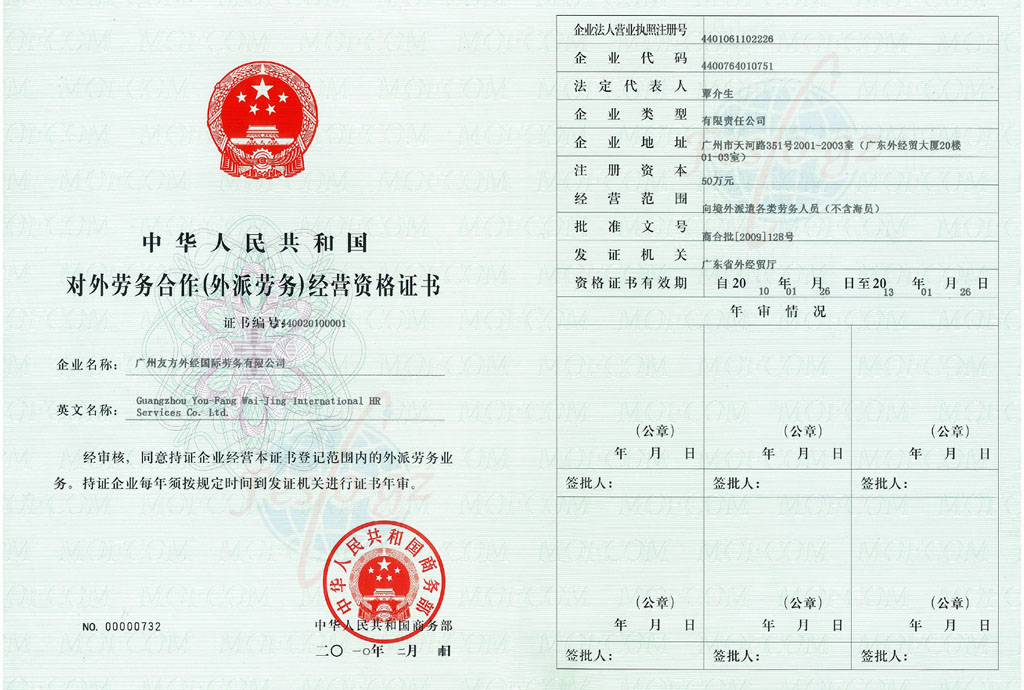 中华人民共和国
对外劳务合作(外派劳务)经营资格证书
证书编号440020100001
企业名称: 广州友方外经国际劳务有限公司
英文名称: Guangzhou You-Fang Wai-Jing International HR
Services Co. Ltd.
经审核,同意持证企业经营本证书登记范围内的外派劳务业
务。持证企业每年须按规定时间到发证机关进行证书年审。
中华人民共和国商务部
NO. 00000732
中华人民共和国商务部
二〇一〇年 二月 日
企业法人营业执照注册号 4401061102226
企业代码 4400764010751
法定代表人 覃介生
企业类型 有限责任公司
企业地址 广州市天河路351号2001-2003室(广东外经贸大厦20楼
01-03室)
注册资本 50万元
经营范围 向境外派遣各类劳务人员(不含海员)
批准文号 商合批[2009]128号
发证机关 广东省外经贸厅
资格证书有效期 自20 10 年 01 月 26 日至20 13 年 01 月 26 日
年审情况
(公章) (公章) (公章)
年 月 日 年 月 日 年 月 日
签批人: 签批人: 签批人:
(公章) (公章) (公章)
年 月 日 年 月 日 年 月 日
签批人: 签批人: 签批人: